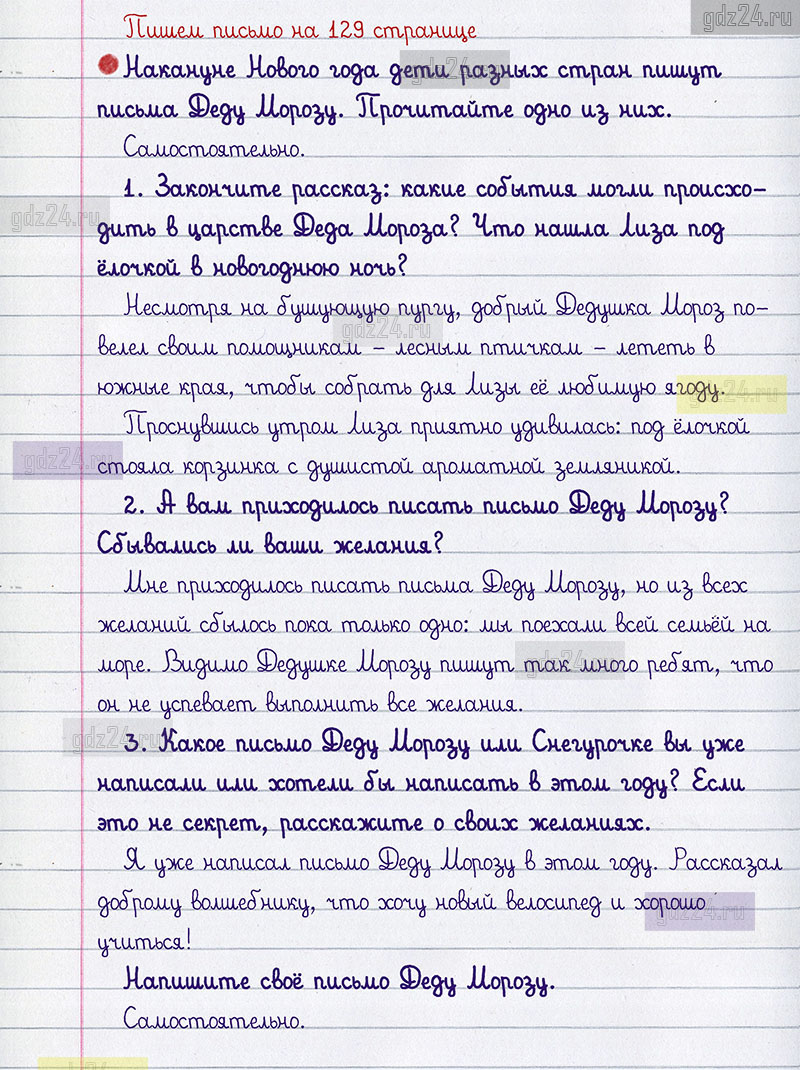 gdz24.ru
Пишем письмо на 129 странице
Накануне Нового года дети разных стран пишут
письма Деду Морозу. Прочитайте одно из них.
Самостоятельно.
1. Закончите рассказ: какие события могли происхо-
дить в царстве Деда Мороза? Что нашла Лиза под
ёлочкой в новогоднюю ночь?
Несмотря на бушующую пургу, добрый Дедушка Мороз по-
велел своим помощникам – лесным птичкам – лететь в
южные края, чтобы собрать для Лизы её любимую ягоду.
Проснувшись утром Лиза приятно удивилась: под ёлочкой
стояла корзинка с душистой ароматной земляникой.
2. А вам приходилось писать письмо Деду Морозу?
Сбывались ли ваши желания?
Мне приходилось писать письма Деду Морозу, но из всех
желаний сбылось пока только одно: мы поехали всей семьёй на
море. Видимо Дедушке Морозу пишут так много ребят, что
он не успевает выполнить все желания.
3. Какое письмо Деду Морозу или Снегурочке вы уже
написали или хотели бы написать в этом году? Если
это не секрет, расскажите о своих желаниях.
Я уже написал письмо Деду Морозу в этом году. Рассказал
доброму волшебнику, что хочу новый велосипед и хорошо
учиться!
Напишите своё письмо Деду Морозу.
Самостоятельно.